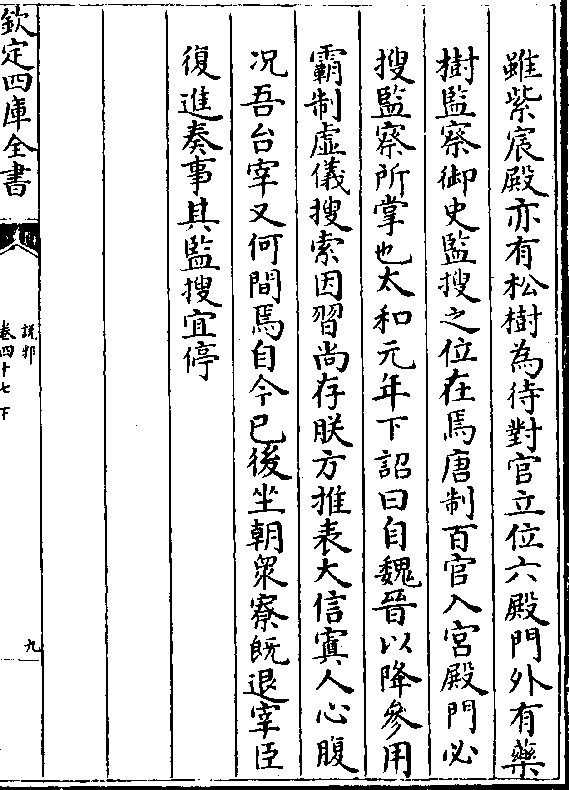 雖紫宸殿亦有松樹為待對官立位六殿門外有藥
樹監察御史監搜之位在焉唐制百官入宮殿門必
搜監察所掌也太和元年下詔曰自魏晉以降參用
霸制虛儀搜索因習尚存朕方推表大信寘人心腹
况吾台宰又何間焉自今已後坐朝衆寮既退宰臣
復進奏事其監搜宜停
欽定四庫全書
說郛
卷四十七下
九